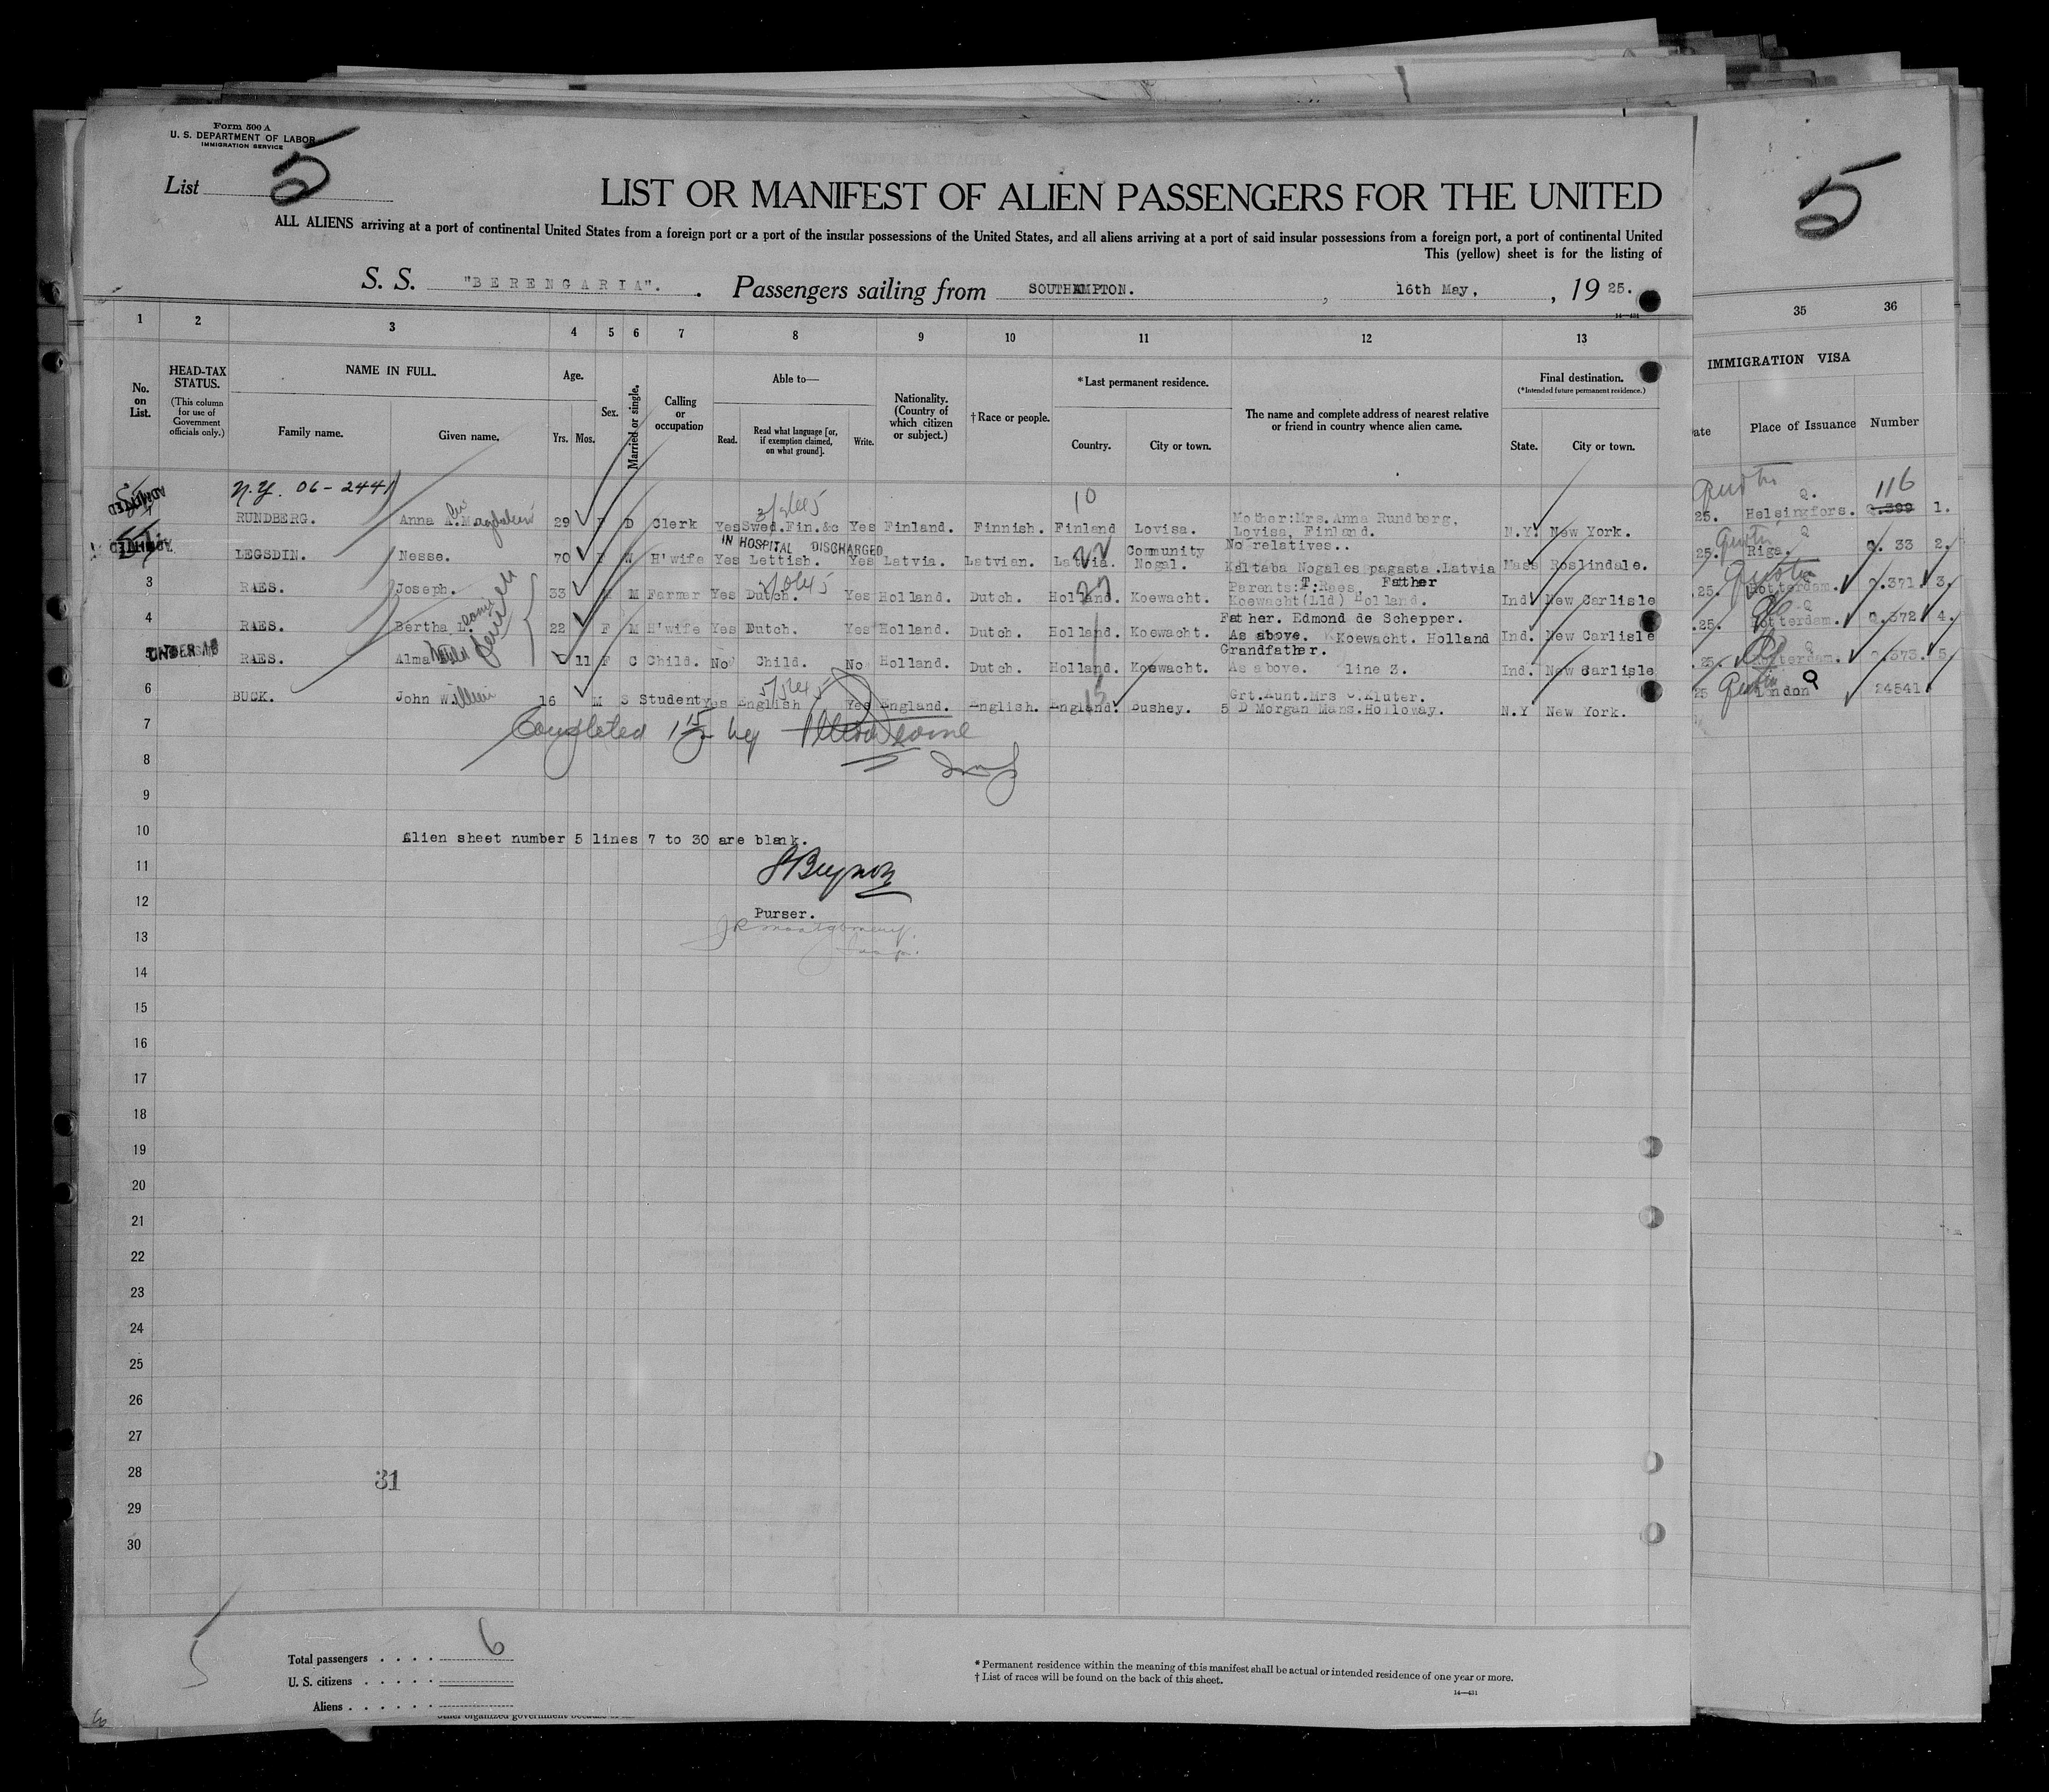 Form 500 A
U. S. DEPARTMENT OF LABOR
IMMIGRATION SERVICE
List 5
5
LIST OR MANIFEST OF ALIEN PASSENGERS FOR THE UNITED
ALL ALIENS arriving at a port of continental United States from a foreign port or a port of the insular possessions of the United States, and all aliens arriving at a port of said insular possessions from a foreign port, a port of continental United
This (yellow) sheet is for the listing of
S. S. "BERENGARIA". Passengers sailing from SOUTHAMPTON. , 16th May, , 19 25.
1 2 3 4 5 6 7 8 9 10 11 12 13 35 36
No. on List.
HEAD-TAX STATUS.
(This column for use of Government officials only.)
NAME IN FULL.
Family name. Given name.
Age.
Yrs. Mos.
Sex.
Married or single.
Calling or occupation
Able to—
Read. Read what language [or, if exemption claimed, on what ground]. Write.
Nationality. (Country of which citizen or subject.)
†Race or people.
*Last permanent residence.
Country. City or town.
The name and complete address of nearest relative or friend in country whence alien came.
Final destination.
(*Intended future permanent residence.)
State. City or town.
IMMIGRATION VISA
Place of Issuance Number
N.Y. 06-2441
10
116
ADMITTED RUNDBERG. Anna A. Magdalena 29 F D Clerk Yes Swed.Fin.&c Yes Finland. Finnish. Finland Lovisa. Mother:Mrs.Anna Rundberg, Lovisa, Finland. N.Y. New York. 25. Helsingfors. 1.
IN HOSPITAL DISCHARGED
ADMITTED LEGSDIN. Nesse. 70 F H'wife Yes Lettish. Yes Latvia. Latvian. Latvia. Community Nogal. No relatives.. Kaltaba Nogales pagasta.Latvia Mass Roslindale. 25. Riga. Q. 33 2.
3 RAES. Joseph. 33 M M Farmer Yes Dutch. Yes Holland. Dutch. Holland. Koewacht. Parents:T:Raes, Father Koewacht(Lld) Holland. Ind. New Carlisle 25. Rotterdam. Q.371 3.
4 RAES. Bertha L. 22 F M H'wife Yes Dutch. Yes Holland. Dutch. Holland. Koewacht. Father. Edmond de Schepper. As above. Koewacht. Holland Ind. New Carlisle 25. Rotterdam. Q.372 4.
UNDER 16 RAES. Alma 11 F C Child. No Child. No Holland. Dutch. Holland. Koewacht. Grandfather. As above. line 3. Ind. New Carlisle 25. Rotterdam. Q.373. 5.
6 BUCK. John William 16 M S Student yes English Yes England. English. England. Bushey. Grt.Aunt.Mrs C.Kluter. 5 D Morgan Mans.Holloway. N.Y New York. 25 London 24541
7
Completed by
8
9
10
Alien sheet number 5 lines 7 to 30 are blank.
11
12
Purser.
13
14
15
16
17
18
19
20
21
22
23
24
25
26
27
28
31
29
30
5
Total passengers . . . . 6
U. S. citizens . . . . .
Aliens . . . . . .
* Permanent residence within the meaning of this manifest shall be actual or intended residence of one year or more.
† List of races will be found on the back of this sheet.
14—431